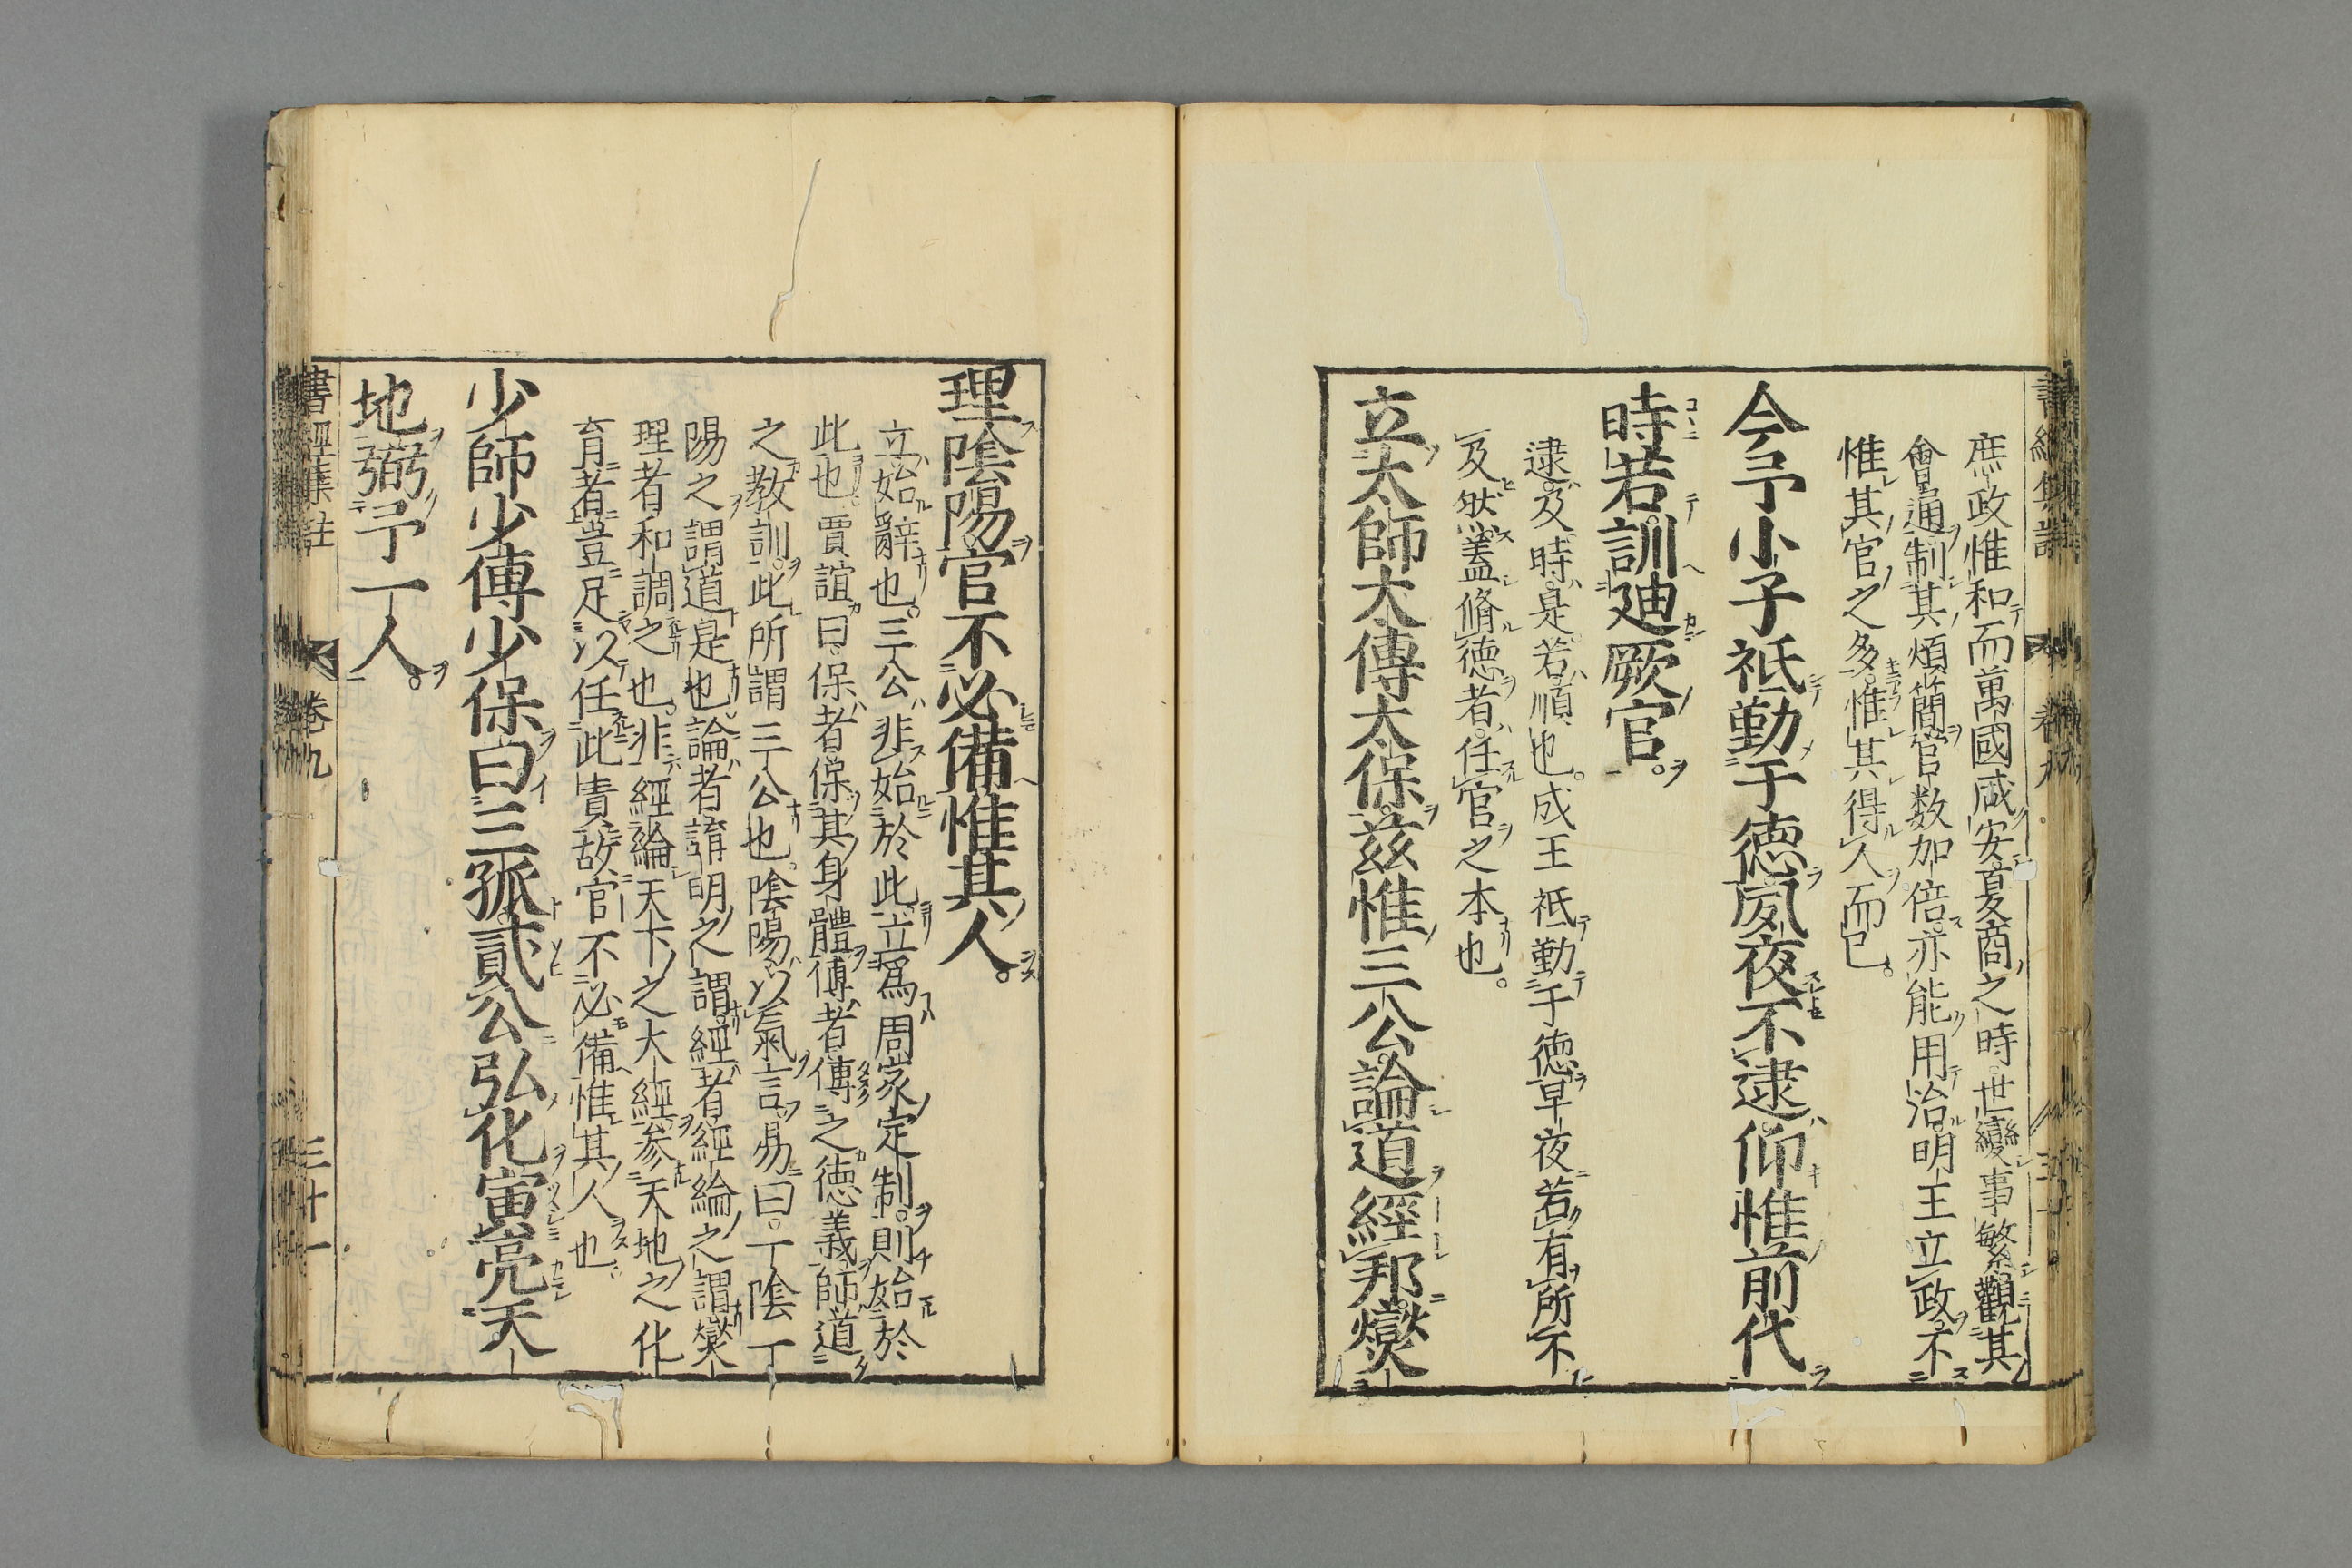 庶政惟和而萬國咸安夏商之時世變事繁觀其
會通制其煩簡官数加倍亦能用治明王立政不
惟其官之多惟其得人而已。
今予小子祗勤于德夙夜不逮仰惟前代
時若訓迪厥官。
逮及時是若順也。成王祗勤于德早夜若有所不
及然蓋脩德者任官之本也。
立太師太傅太保茲惟三公論道經邦燮
理陰陽官不必備惟其人。
立始辭也。三公非始於此立爲周家定制則始於
此也。賈誼曰。保者保其身體傅者傅之德義師道
之教訓此所謂三公也。陰陽以氣言易曰。一陰一
陽之謂道是也。論者講明之謂經者經綸之謂燮
理者和調之也。非經綸天下之大經參天地之化
育者豈足以任此責故官不必備惟其人也。
少師少傅少保曰三孤貳公弘化寅亮天
地弼予一人。
書經集註 卷九 三十一